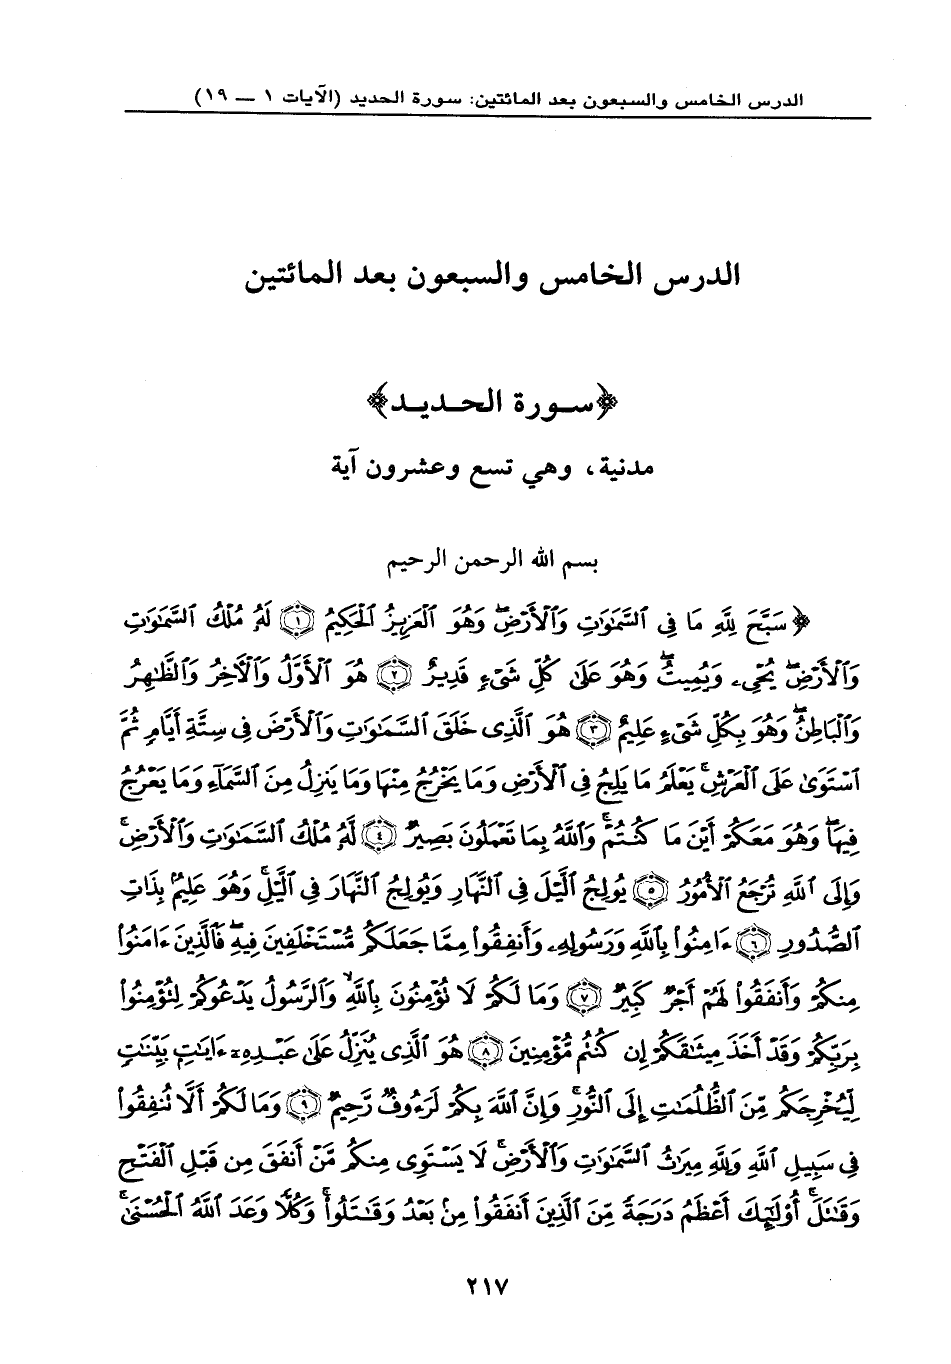 الدرس الخامس والسبعون بعد المائتين: سورة الحديد (الآيات ١ — ١٩)
الدرس الخامس والسبعون بعد المائتين
﴿سورة الحديد﴾
مدنية، وهي تسع وعشرون آية
بسم الله الرحمن الرحيم
﴿سَبَّحَ لِلَّهِ مَا فِى ٱلسَّمَٰوَٰتِ وَٱلْأَرْضِۖ وَهُوَ ٱلْعَزِيزُ ٱلْحَكِيمُ ١ لَهُۥ مُلْكُ ٱلسَّمَٰوَٰتِ
وَٱلْأَرْضِۖ يُحْىِۦ وَيُمِيتُۖ وَهُوَ عَلَىٰ كُلِّ شَىْءٍ قَدِيرٌ ٢ هُوَ ٱلْأَوَّلُ وَٱلْءَاخِرُ وَٱلظَّٰهِرُ
وَٱلْبَاطِنُۖ وَهُوَ بِكُلِّ شَىْءٍ عَلِيمٌ ٣ هُوَ ٱلَّذِى خَلَقَ ٱلسَّمَٰوَٰتِ وَٱلْأَرْضَ فِى سِتَّةِ أَيَّامٍ ثُمَّ
ٱسْتَوَىٰ عَلَى ٱلْعَرْشِۚ يَعْلَمُ مَا يَلِجُ فِى ٱلْأَرْضِ وَمَا يَخْرُجُ مِنْهَا وَمَا يَنزِلُ مِنَ ٱلسَّمَآءِ وَمَا يَعْرُجُ
فِيهَاۖ وَهُوَ مَعَكُمْ أَيْنَ مَا كُنتُمْۚ وَٱللَّهُ بِمَا تَعْمَلُونَ بَصِيرٌ ٤ لَّهُۥ مُلْكُ ٱلسَّمَٰوَٰتِ وَٱلْأَرْضِۚ
وَإِلَى ٱللَّهِ تُرْجَعُ ٱلْأُمُورُ ٥ يُولِجُ ٱلَّيْلَ فِى ٱلنَّهَارِ وَيُولِجُ ٱلنَّهَارَ فِى ٱلَّيْلِۚ وَهُوَ عَلِيمٌۢ بِذَاتِ
ٱلصُّدُورِ ٦ ءَامِنُوا۟ بِٱللَّهِ وَرَسُولِهِۦ وَأَنفِقُوا۟ مِمَّا جَعَلَكُم مُّسْتَخْلَفِينَ فِيهِۖ فَٱلَّذِينَ ءَامَنُوا۟
مِنكُمْ وَأَنفَقُوا۟ لَهُمْ أَجْرٌ كَبِيرٌ ٧ وَمَا لَكُمْ لَا تُؤْمِنُونَ بِٱللَّهِۙ وَٱلرَّسُولُ يَدْعُوكُمْ لِتُؤْمِنُوا۟
بِرَبِّكُمْ وَقَدْ أَخَذَ مِيثَٰقَكُمْ إِن كُنتُم مُّؤْمِنِينَ ٨ هُوَ ٱلَّذِى يُنَزِّلُ عَلَىٰ عَبْدِهِۦٓ ءَايَٰتٍۭ بَيِّنَٰتٍ
لِّيُخْرِجَكُم مِّنَ ٱلظُّلُمَٰتِ إِلَى ٱلنُّورِۚ وَإِنَّ ٱللَّهَ بِكُمْ لَرَءُوفٌ رَّحِيمٌ ٩ وَمَا لَكُمْ أَلَّا تُنفِقُوا۟
فِى سَبِيلِ ٱللَّهِ وَلِلَّهِ مِيرَٰثُ ٱلسَّمَٰوَٰتِ وَٱلْأَرْضِۚ لَا يَسْتَوِى مِنكُم مَّنْ أَنفَقَ مِن قَبْلِ ٱلْفَتْحِ
وَقَٰتَلَۚ أُو۟لَٰٓئِكَ أَعْظَمُ دَرَجَةً مِّنَ ٱلَّذِينَ أَنفَقُوا۟ مِنۢ بَعْدُ وَقَٰتَلُوا۟ۚ وَكُلًّا وَعَدَ ٱللَّهُ ٱلْحُسْنَىٰۚ
٢١٧